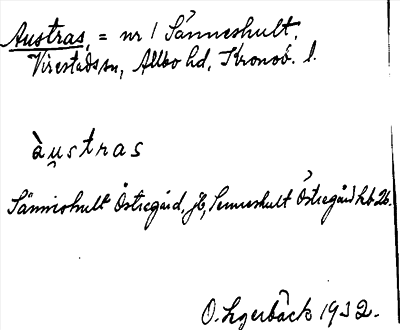 Austras, = nr 1 Sånneshult,
Virestads sn, Allbo hd, Kronob. l.
àu̯stras
Sånneshult Östregård, jb, Senneshult Östregård hb 26.
O. Lgerbäck 1932.